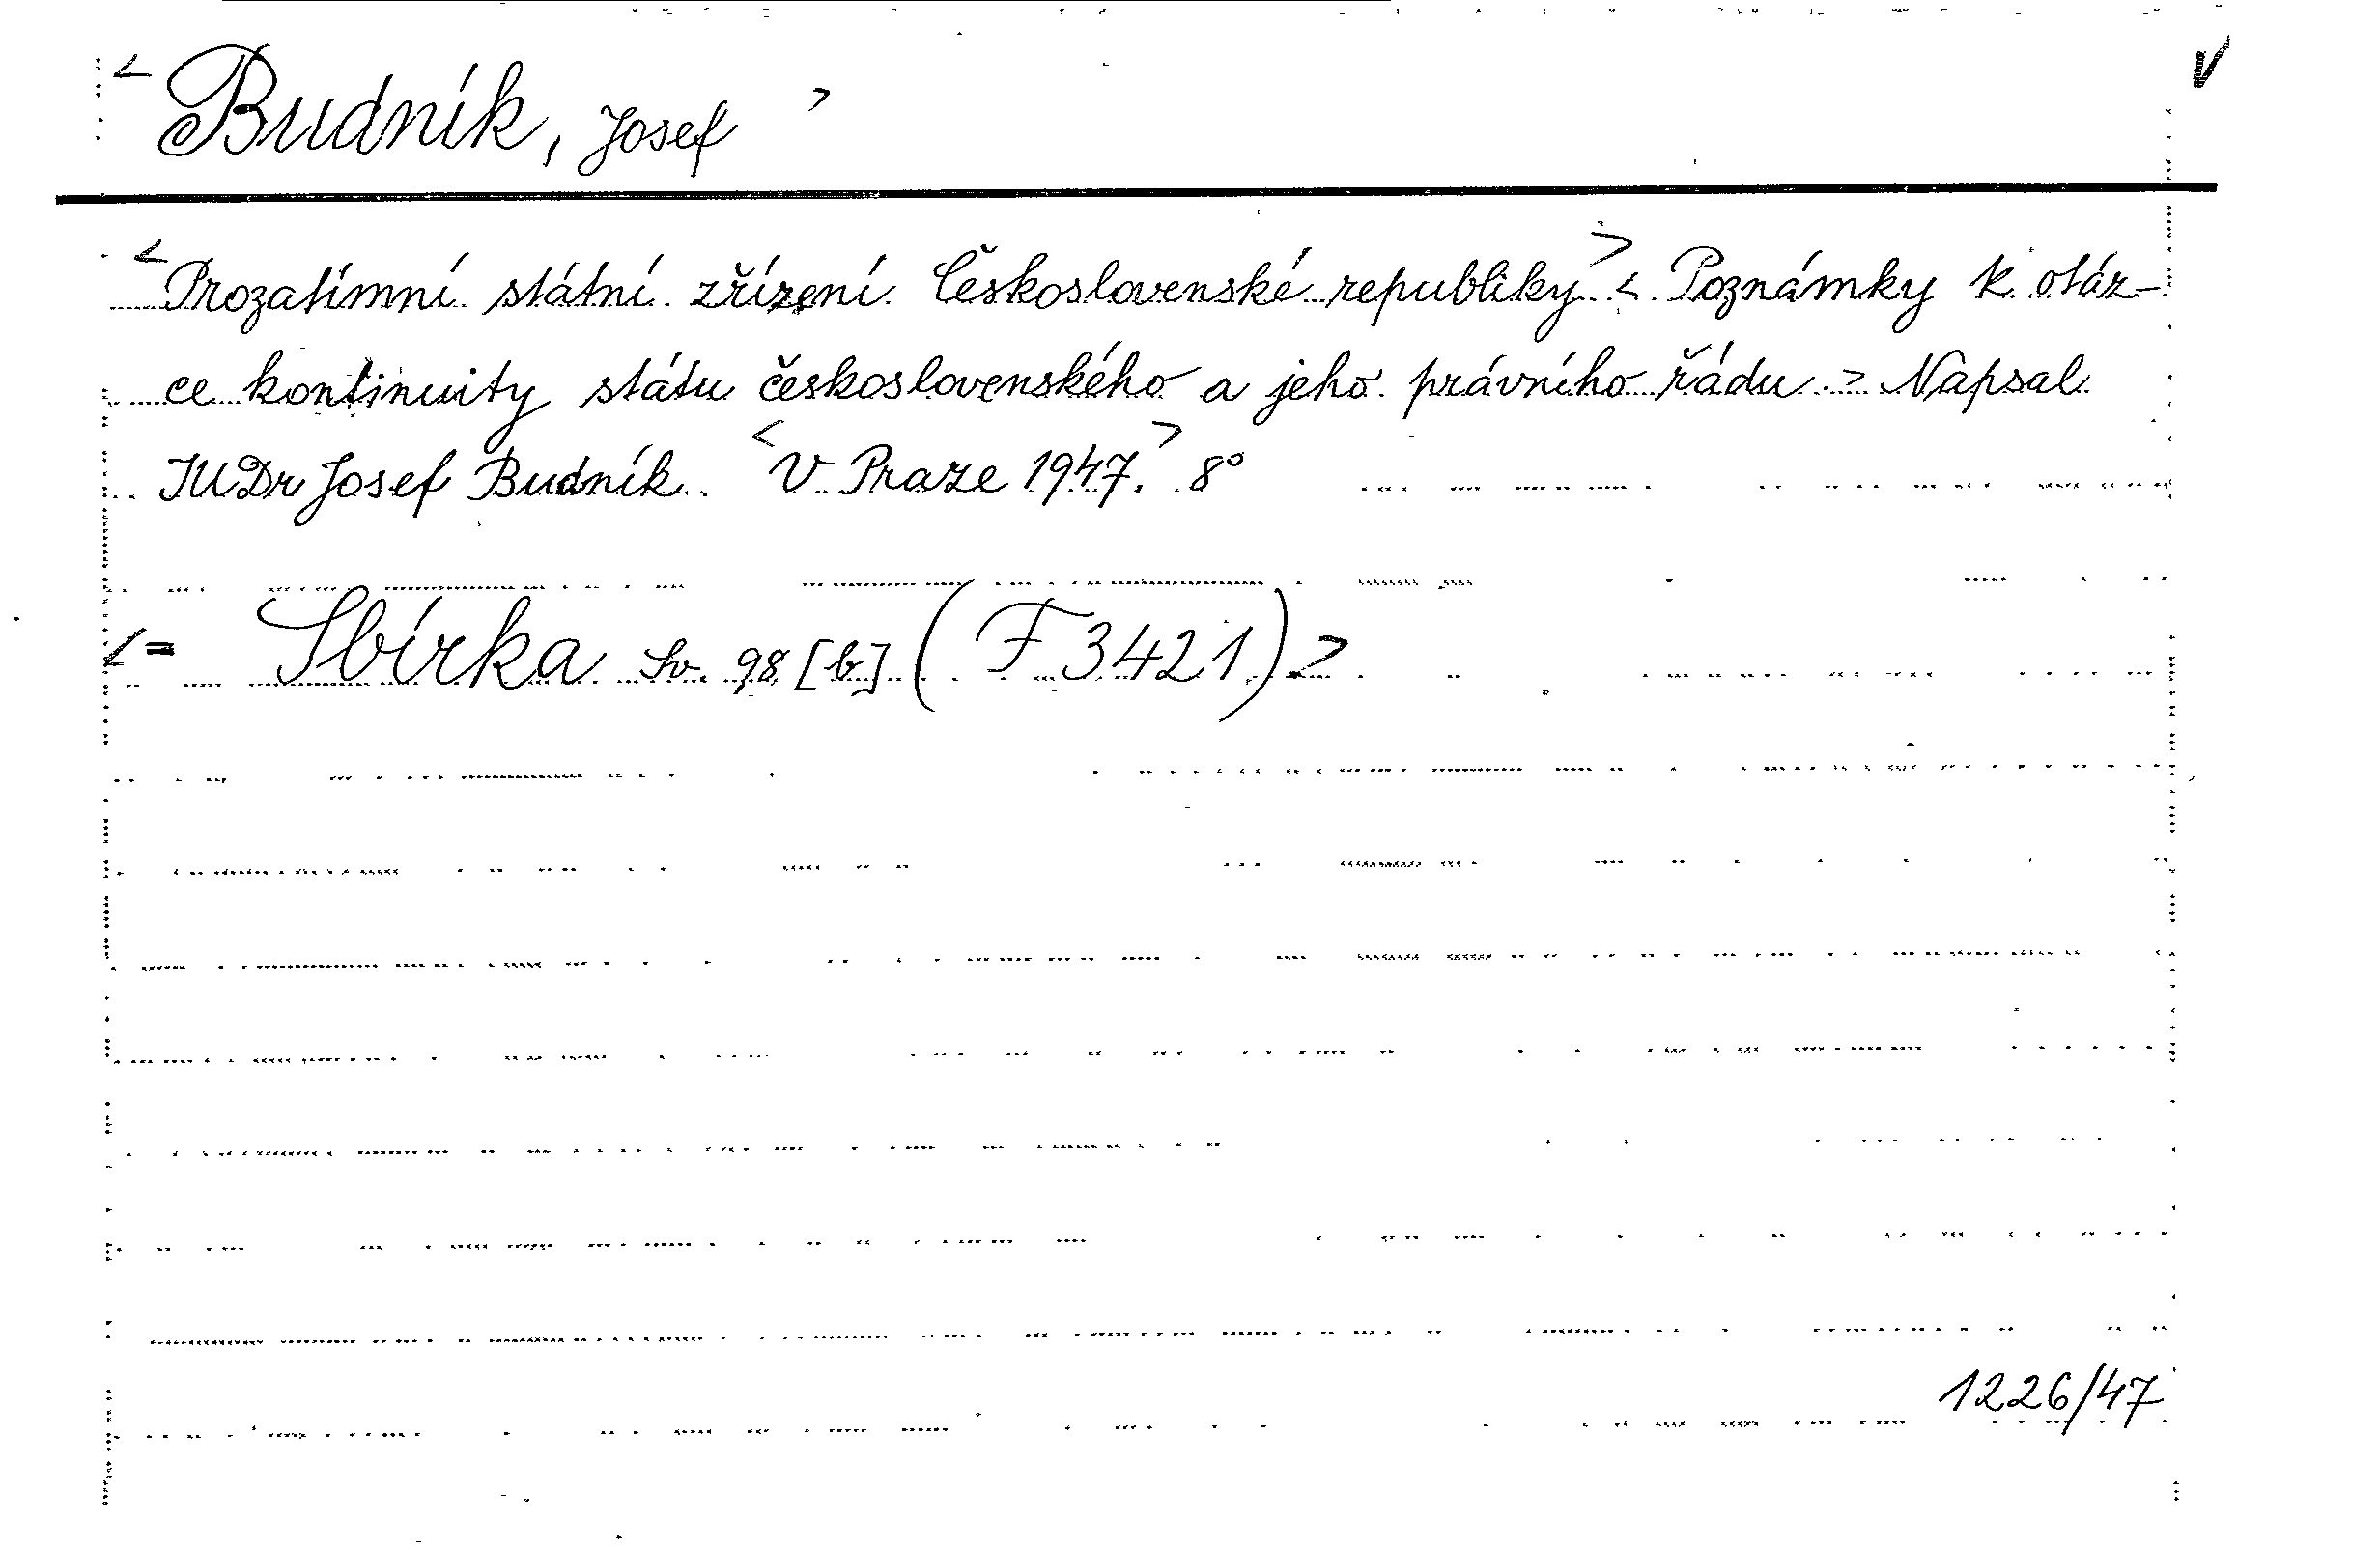 < Budník, Josef > V
< Prozatímní státní zřízení Československé republiky > < Poznámky k otáz-
ce kontinuity státu československého a jeho právního řádu. > Napsal
JUDr Josef Budník. < V Praze 1947. > 8°
< = Sbírka Sv. 98 [b] ( F 3421 ) >
1226/47